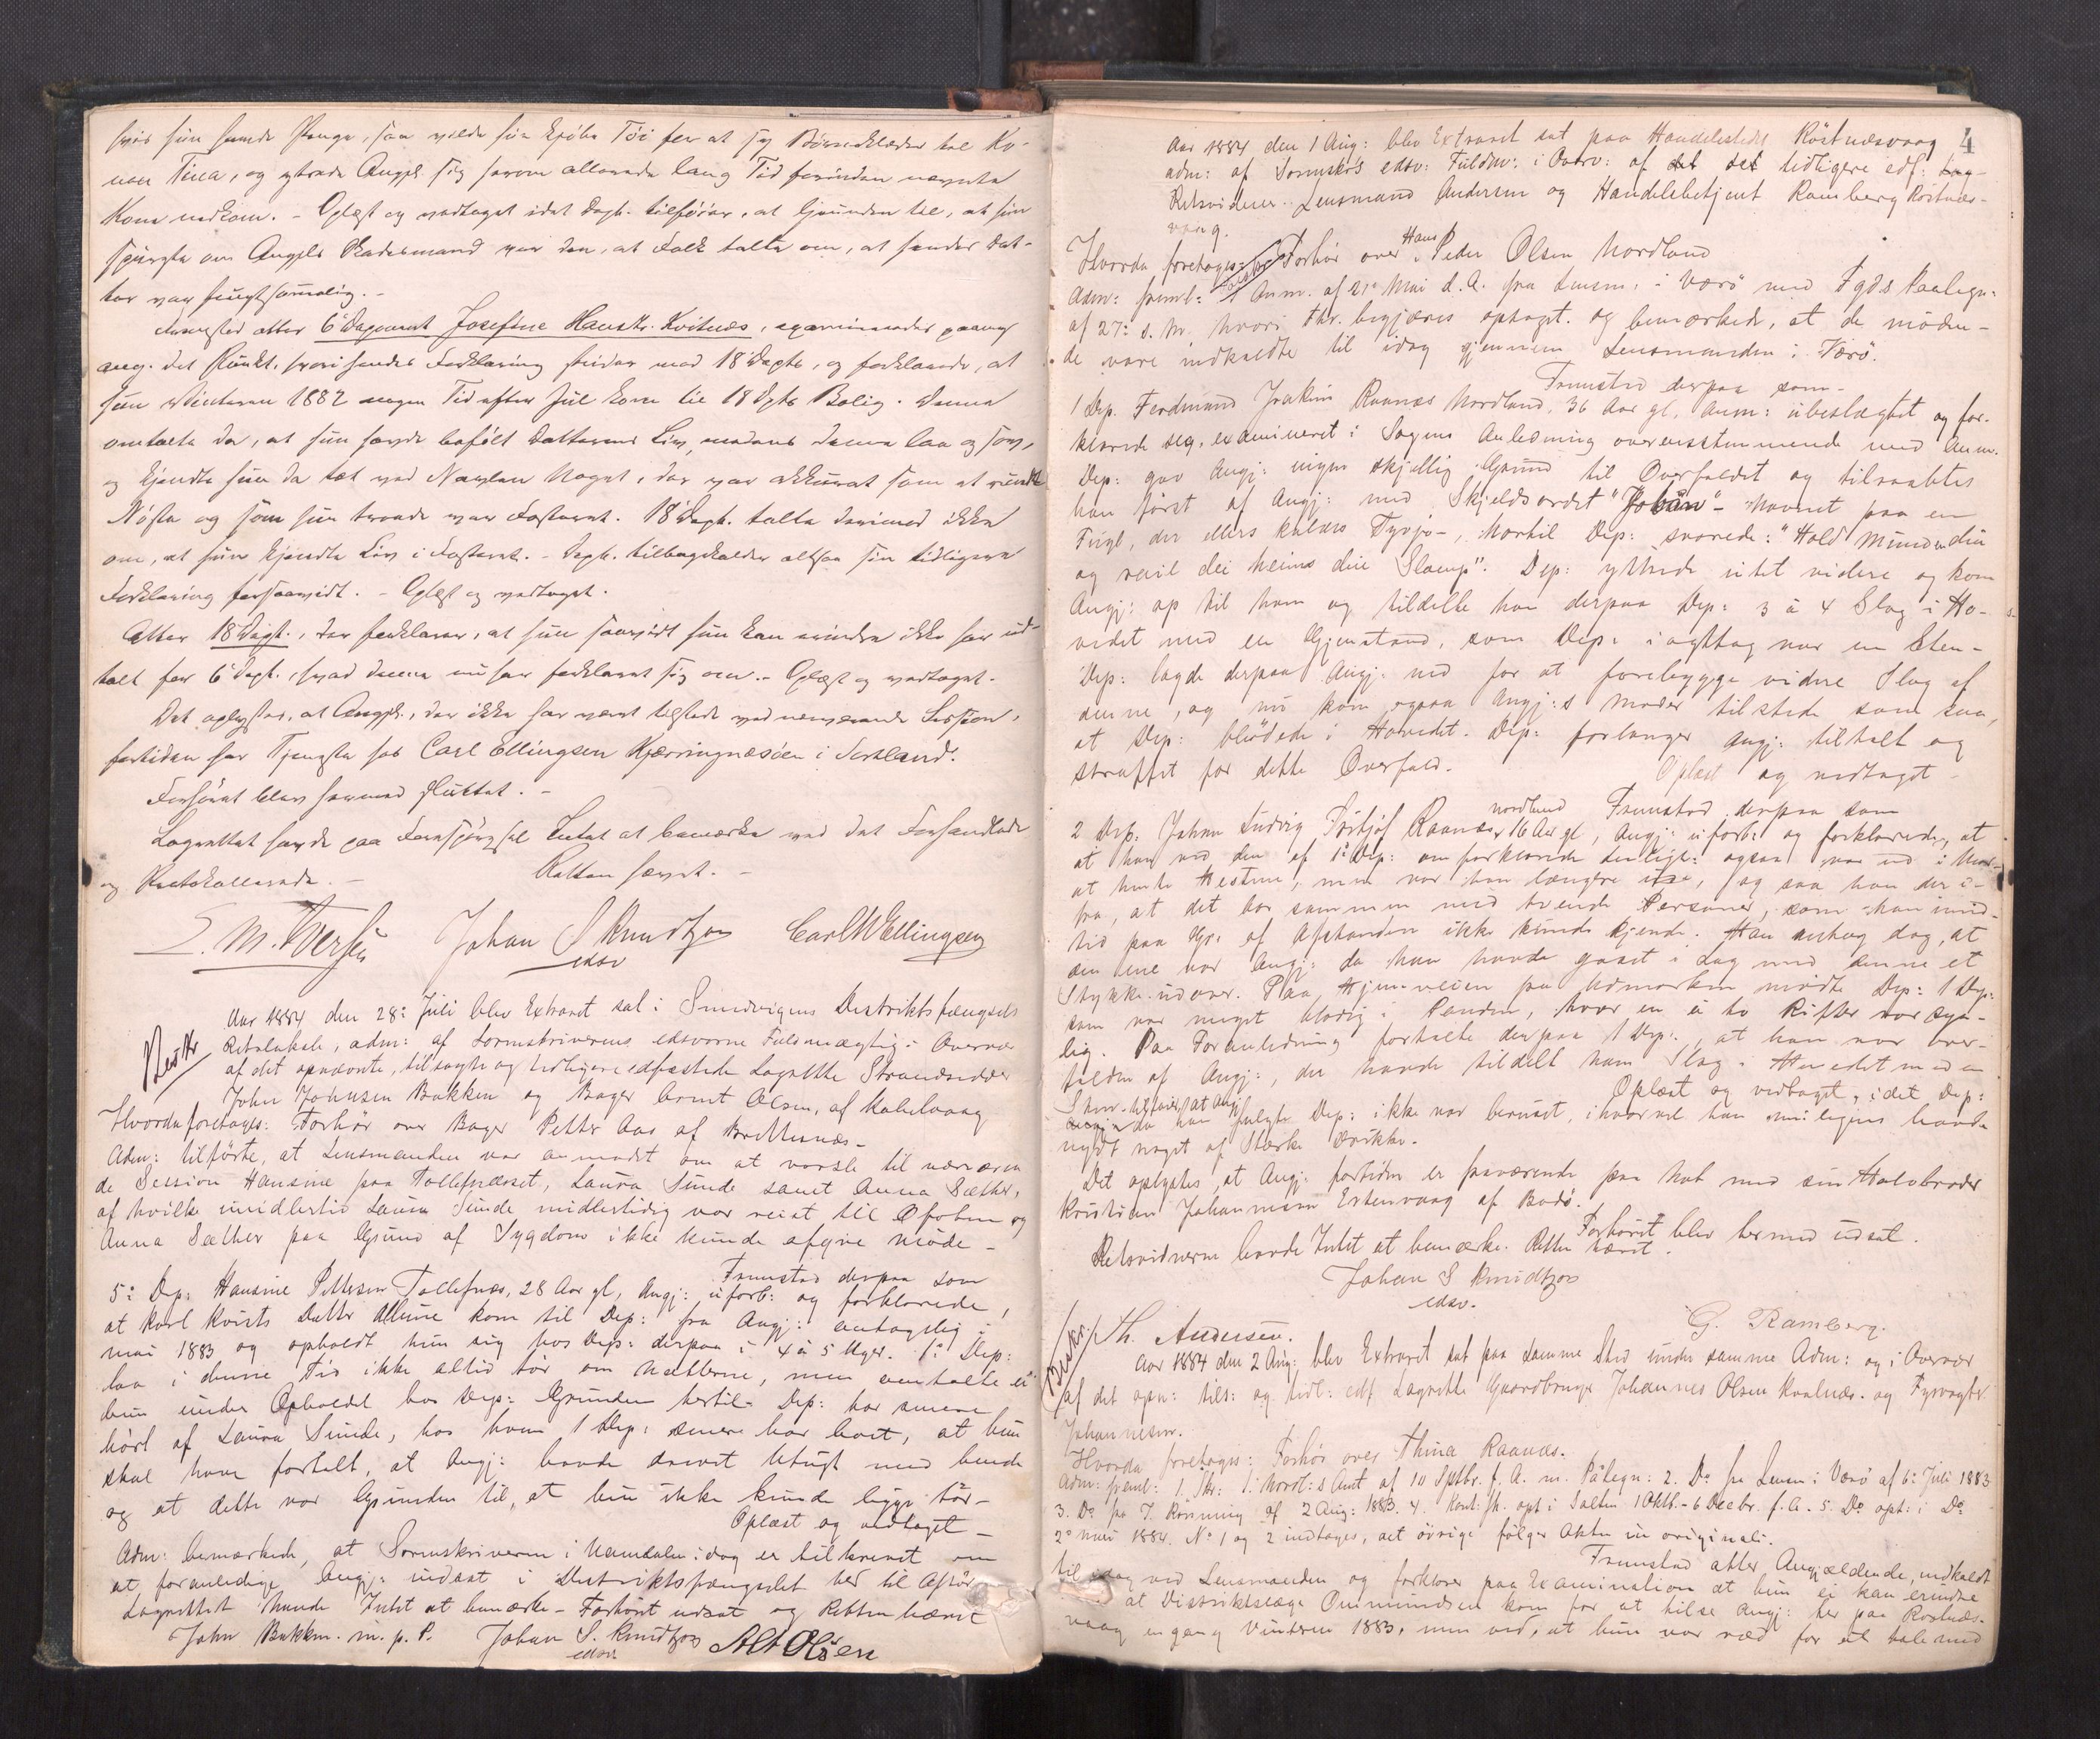 hvis hun havde Penge, saa vilde hun kjøbe Tøi for at sy Børneklæder til Ko-
nen Tina, og ytrede Angjæl. sig herom allerede lang Tid forinden nævnte
Kone nedkom. - Oplæst og vedtaget idet Dept. tilføier, at Grunden til, at hun
spurgte om Angjels Skadesmand var den, at Folk talte om, at hendes Dat-
ter var frugtsommelig. -
Fremsted atter 6te Deponent Josefine Hanstr. Kvitnæs, examineredes paany
ang. det Punkt, hvori hendes Forklaring strider mod 18de Depts, og forklarede, at
hun Vinteren 1882 nogen Tid efter Jul kom til 18 Dpts Bolig. Denne
omtalte da, at hun havde befølt Datterens Liv, medens denne laa og sov,
og kjendte hun da tæt ved Navlen Noget, der var akkurat som et rundt
Nøste og som hun troede var Fosteret. 18de Dept. talte derimod ikke
om, at hun kjendte Liv i Fosteret. - Dept. tilbagekalder altsaa sin tidligere
Forklaring forsaavidt. - Oplæst og vedtaget.
Atter 18de Dept., der forklarer, at hun saavidt hun kan erindre ikke har ud-
talt for 6te Dept., hvad denne nu har forklaret sig om. - Oplæst og vedtaget.
Det oplystes, at Angjæl., der ikke har været tilstede ved nærværende Session,
fortiden har Tjeneste hos Carl Ellingsen Kjærringnæsøen i Sortland.
Forhøret blev hermed sluttet. -
Lagrettet havde paa Forespørgsel Intet at bemærke ved det Forhandlede
og Protokollerede. - Retten hævet. -
E. M. Iversen Johan S Knudtzon Carl W Ellingsen
edsv
Aar 1884 den 28: Juli blev Extraret sat i Svendvigens Distriktsfængsels
Retslokale, adm: af Sorenskriverens edsvorne Fuldmægtig i Overvær
af det opnævnte, tilsagte og tidligere edfæstede Lagrette Strandsidder
John Johnsen Bakken og Bager Arnt Olsen, af Kabelvaag
Hvorda foretages: Forhør over Bager Petter Aas af Brettesnæs -
Adm: tilførte, at Lensmanden var anmodet om at varsle til nærværen
de Session Hansine paa Tollefnæset, Laura Sunde samt Anna Sæther,
af hvilke imidlertid Laura Sunde midlertidig var reist til Ofoten og
Anna Sæther paa Grund af Sygdom ikke kunde afgive Møde -
Fremstod derpaa som
5: Dep: Hansine Pettersen Tollefnæs, 28 Aar gl, Angj: uforb: og forklarede,
at Karl Kvists Datter Alvine kom til Dep: fra Angj: antagelig i
Mai 1883 og opholdt hun sig hos Dep: derpaa i 4 á 5 Uger. 1: Dep:
laa i denne Tid ikke altid tør om Nætterne, men omtalte ei
hun under Opholdet hos Dep: Grunden hertil. Dep: har senere
hørt af Laura Sunde, hos hvem 1 Dep: senere har boet, at hun
skal have fortalt, at Angj: havde drevet Utugt med hende
og at dette var Grunden til, at hun ikke kunde ligge tør -
Oplæst og vedtaget -
Adm: bemærkede, at Sorenskriveren i Namdalen idag er tilskrevet om
at foranledige Angj: indsat i Distriktsfængslet her til Afhør
Lagrettet havde Intet at bemærke - Forhøret udsat og Retten hævet
John Bakken. m. p. P. Johan S. Knudtzon Alt Olsen
edsv
4
Aar 1884 den 1 Aug: blev Extraret sat paa Handelsstedet Røstnæsvaag
adm: af Sornskrs edsv: Fuldm: i Overv: af det tidligere edf:
Retsvidner Lensmand Andersen og Handelsbetjent Ramberg Røstnæs-
vaag.
Hvorda foretoges: Forhør over Hans Peder Olsen Nordland
Adm: freml: 1 Anm. af 21de Mai d. A. fra Lensm: i Værø med Fgds Paalegn:
af 27: s. M. hvori Fhr. begjæres optaget. og bemærkede, at de møden-
de vare indkaldte til idag gjennem Lensmanden i Værø.
Fremstod derpaa som
1 Dep. Ferdinand Joakim Raanæs Nordland, 36 Aar gl. Anm: ubeslægtet og for-
klarede sig, examineret i Sagens Anledning overensstemmende med Anm.
Dep: gav Angj: ingen skjellig Grund til Overfaldet og tilraabtes
han først af Angj: med Skjeldsordet "Jobän" - Navnet paa en
Fugl, der ellers kaldes Tyvjo -, hvortil Dep: svarede: "Hold Munden din
og reis dei heim din Slamp". Dep: yttrede intet videre og kom
Angj: op til ham og tildelte han derpaa Dep: 3 á 4 Slag i Ho-
vedet med en Gjenstand, som Dep: iagttog var en Sten -
Dep: lagde derpaa Angj: ned for at forebygge videre Slag af
denne, og nu kom ogsaa Angj:s Moder tilstede som saa,
at Dep: blødede i Hovedet. Dep: forlanger Angj: tiltalt og
straffet for dette Overfald. Oplæst og vedtaget -
Fremstod derpaa som
2 Dep: Johan Ludvig Fritjof Raanæs Nordland 16 Aar gl, Angj: uforb: og forklarede, at
at han ved den af 1: Dep: omforklarede Leilighed: ogsaa var ud i Mar-
at hente Hestene, men var han længere ude, og saa han der i-
fra, at det bar sammen med tvende Personer, som han imid-
tid paa Gr: af Afstanden ikke kunde kjende. Han antog dog, at
den ene var Angj: da han havde gaaet i Lag med denne et
Stykke udover. Paa Hjemveien paa Udmarken mødte Dep: 1 Dep:
som var meget blodig i Panden, hvor en á to Rifter var syn-
lig. Paa Foranledning fortalte derpaa 1 Dep:, at han var over-
falden af Angj:, der havde tildelt ham Slag i Hovedet med en
Sten. Oplæst og vedtaget, idet Dep:
tilføier, at Angj: da han fulgte Dep: ikke var beruset, ihvorvel han muligens havde
nydt noget af Stærke Drikke.
Det oplystes, at Angj: fortiden er fraværende paa Not med sin Halvbroder
Kristian Johannesen Erstenvaag af Bodø.
Forhøret blev hermed udsat.
Retsvidnerne havde Intet at bemærke. Retten hævet.
Johan S Knudtzon
edsv.
Th. Andersen. G. Ramberg.
Aar 1884 den 2 Aug: blev Extraret sat paa samme Sted under samme Adm: og i Overvær
af det opn: tils: og tidl: edf Lagrette Gaardbruger Johannes Olsen Kvalnæs. og Fyrvogter
Johannesen.
Hvorda foretoges: Forhør over Thina Raanæs.
Adm: freml: 1. Skr: f. Nordl:s Amt af 10 Septbr. f. A. m. Pålegn: 2. Do fra Lensm: i Værø af 6: Juli 1883
3. Do fra J. Rønning af 2 Aug: 1883. 4. Kont: fh. opt i Salten 1 Oktb. - 6 Decbr. f. A. 5. Do opt: i Do
2de Mai 1884. No 1 og 2 indtages, det øvrige følger Akten in originali.
Fremstod atter Angjældende, indkaldt
til idag ved Lensmanden og forklarer paa Examination at hun ei kan erindre
at Distriktslæge Ommundsen kom for at tilse Angj: her paa Røstnæs-
vaag engang Vinteren 1883. men ved, at hun var ræd for at tale med